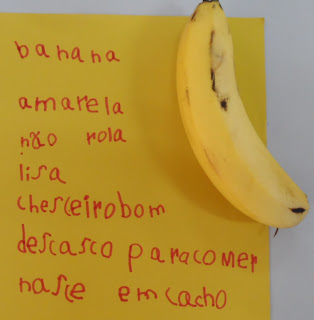 banana
amarela
não rola
lisa
chesceirobom
descasco paracomer
nasce emcacho